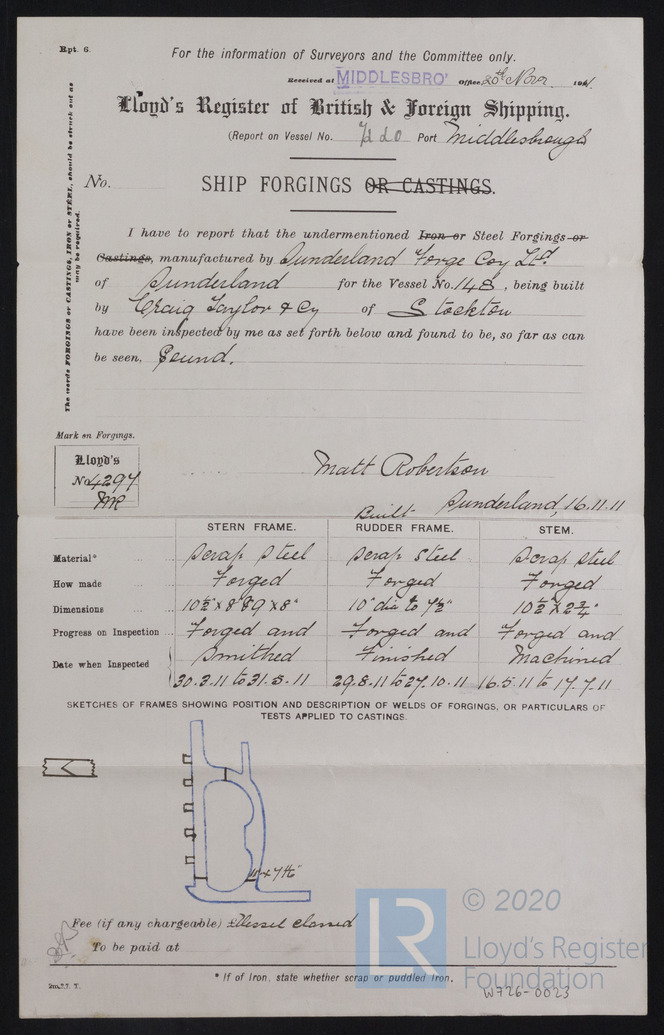 Rpt. 6.
For the information of Surveyors and the Committee only.
Received at MIDDLESBRO' Office 20th Novr 1911.
Lloyd's Register of British & Foreign Shipping.
(Report on Vessel No. 7220 Port Middlesbrough
The words FORGINGS or CASTINGS, IRON or STEEL, should be struck out as
may be required.
No. SHIP FORGINGS OR CASTINGS.
I have to report that the undermentioned Iron or Steel Forgings or
Castings, manufactured by Sunderland Forge Coy Ltd.
of Sunderland for the Vessel No. 148, being built
by Craig Taylor & Cy of Stockton
have been inspected by me as set forth below and found to be, so far as can
be seen, Sound.
Mark on Forgings.
Lloyd's
No 4297
MR
Matt Robertson
Sunderland, 16.11.11
Built
STERN FRAME. RUDDER FRAME. STEM.
Material* Scrap Steel Scrap Steel Scrap Steel
How made Forged Forged Forged
Dimensions 10½" x 8" & 9 x 8" 10" dia to 7½" 10½" x 2¾"
Progress on Inspection Forged and Forged and Forged and
Smithed Finished Machined
Date when Inspected 30.3.11 to 31.5.11 29.8.11 to 27.10.11 16.5.11 to 17.7.11
SKETCHES OF FRAMES SHOWING POSITION AND DESCRIPTION OF WELDS OF FORGINGS, OR PARTICULARS OF
TESTS APPLIED TO CASTINGS.
Fee (if any chargeable) £ Vessel classed
To be paid at
* If of Iron, state whether scrap or puddled iron.
2m,7,7. T.
LR
© 2020
Lloyd's Register
Foundation
W726-0023